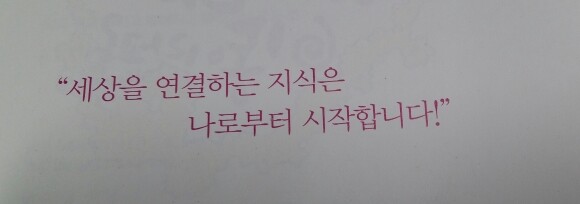 “세상을 연결하는 지식은
나로부터 시작합니다!”